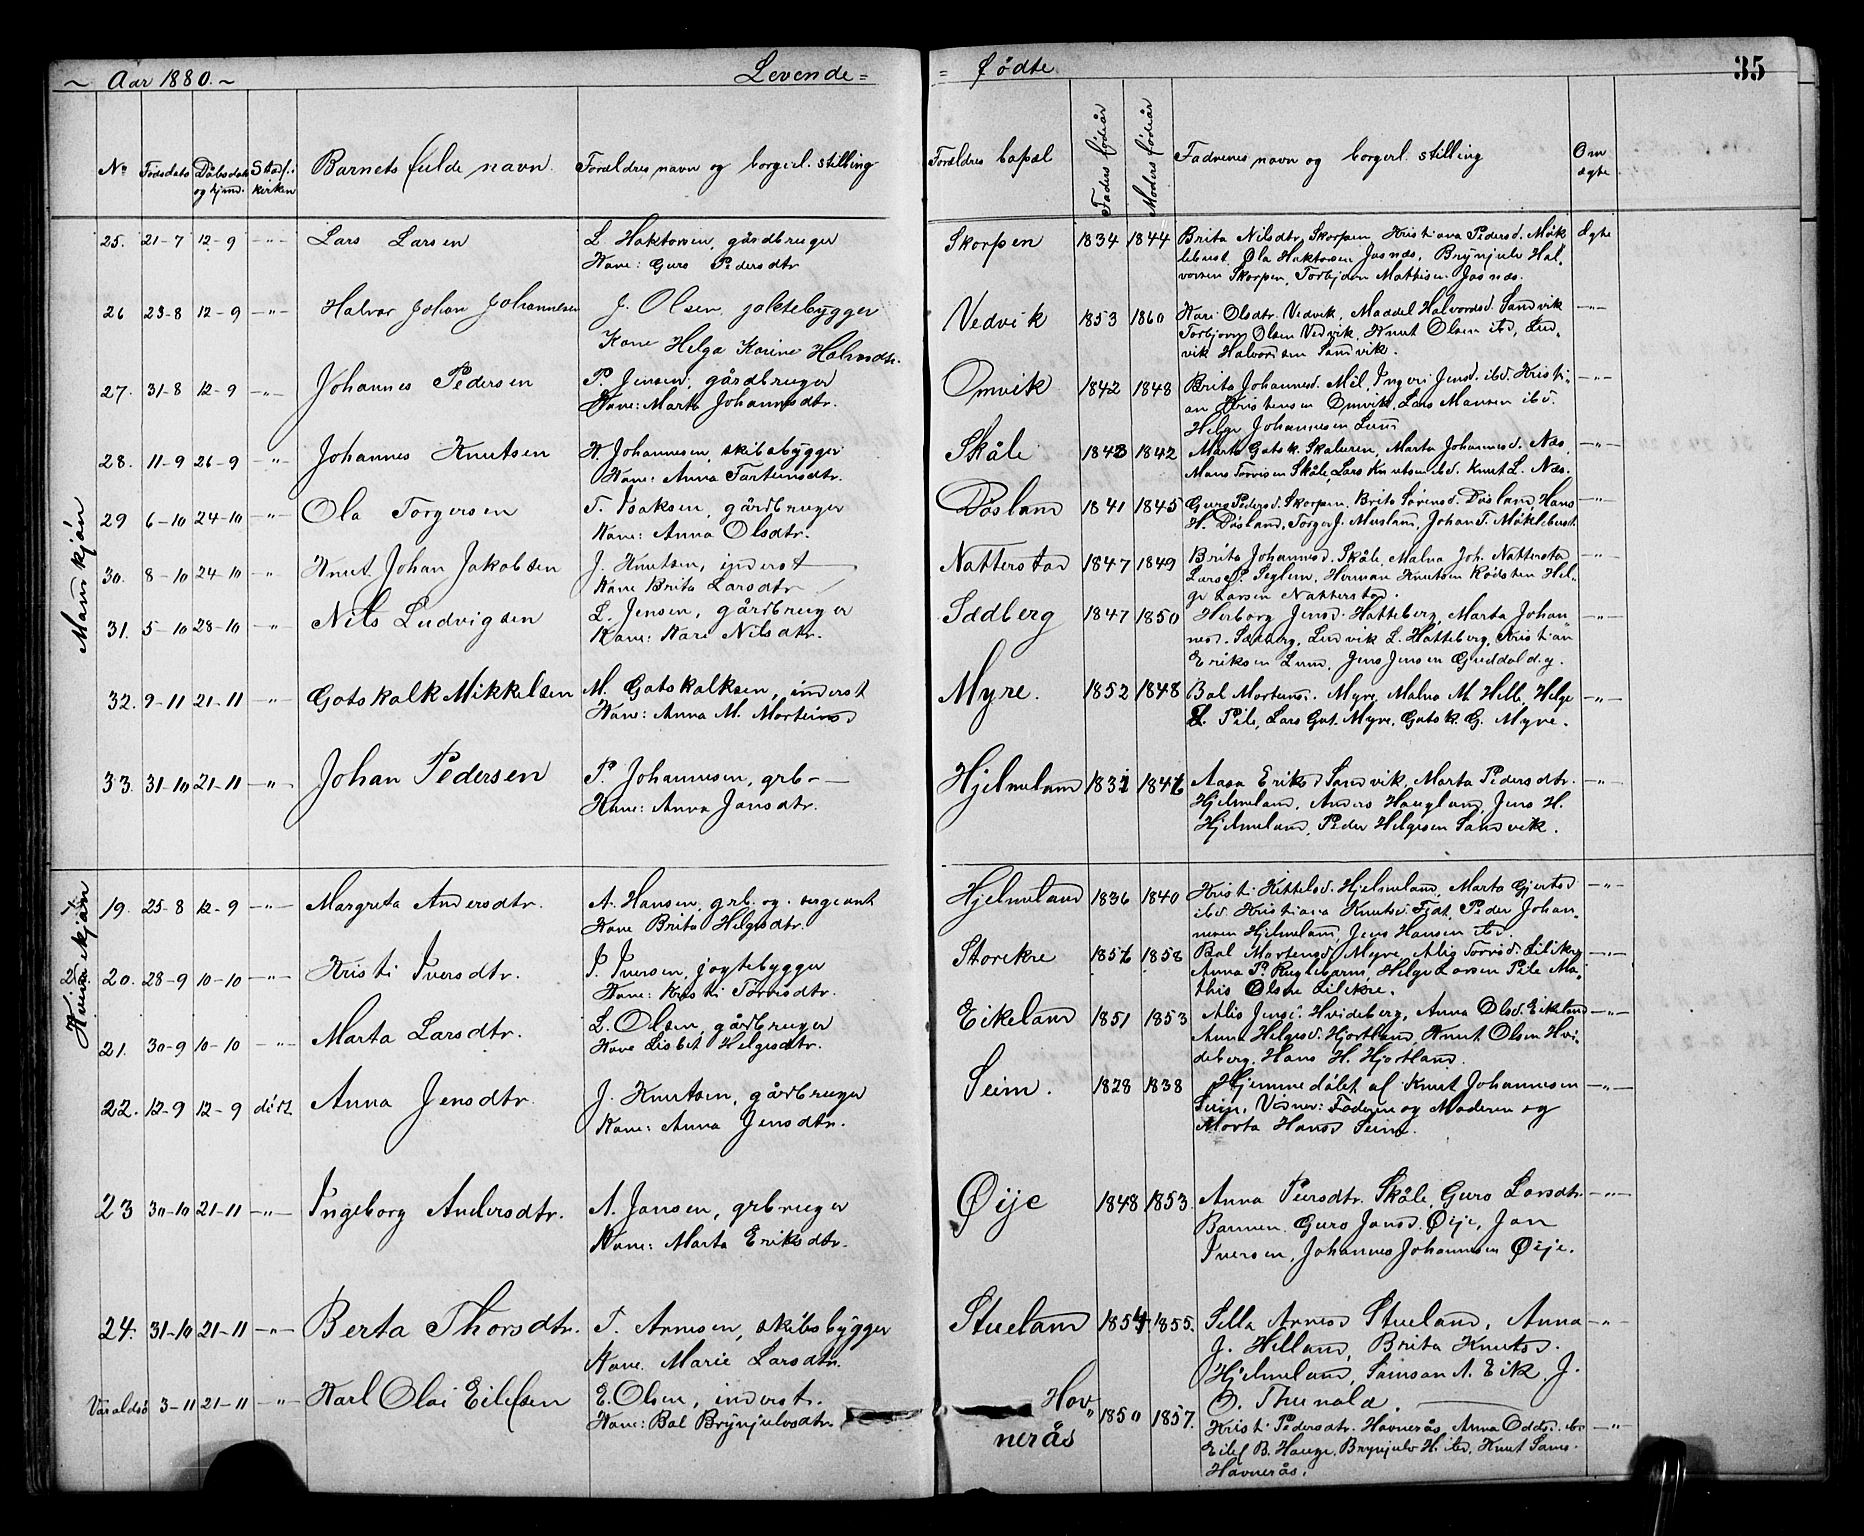 ~ Aar 1880. ~ Levende = = Fødte 35
No Fødsdato Dåbsdato og hjemd. Stadf. i kirken Barnets fulde navn. Forældres navn og borgerl. stilling Forældres bopæl Faders fødeår Moders fødeår Fadrenes navn og borgerl. stilling Om ægte
Mandkjøn
25. 21-7 12-9 -"- Lars Larsen L. Haktorsen, gårdbruger Skorpen 1834 1844 Brita Nilsdtr. Skorpen, Kristiana Pedersd. Møk Ægte
Kone: Guro Pedersdtr. lebust, Ola Haktorsen Jusnæs, Brynjulv Hal-
vorsen Skorpen, Torbjørn Mathisen Jusnæs.
26 23-8 12-9 -"- Halvor Johan Johannesen J. Olsen, jaktebygger Vedvik 1853 1860 Kari Olsdtr. Vedvik, Maddel Halvorsd. Sandvik -"-
Kone Helga Karine Halvordtr. Torbjørn Olsen Vedvik, Knut Olsen ibd, Lud-
vik Halvordsen Sandvik.
27. 31-8 12-9 -"- Johannes Pedersen P. Jensen, gårdbruger Omvik 1842 1848 Brita Johannesd. Mel, Ingeri Jensd. ibd. Kristi- -"-
Kone: Marta Johannesdtr. an Kristensen Omvik, Lars Mansen ibd.
Helge Johannesen Lund
28. 11-9 26-9 -"- Johannes Knutsen K. Johannesen, skibsbygger Skåle 1843 1842 Marta Gotsk. Skaluren, Marta Johannesd. Næs, -"-
Kone: Anna Torteinsdtr. Mans Torrisen Skåle, Lars Knutsen ibd. Knut L. Næs.
29 6-10 24-10 -"- Ola Torgersen T. Isaksen, gårdbruger Døsland 1841 1845 Guro Pedersd. Skorpen, Brita Sørensd. Døsland, Hans -"-
Kone: Anna Olsdtr. H. Døsland, Torger J. Musland, Johan T. Møklebust.
30. 8-10 24-10 -"- Knut Johan Jakobsen J. Knutsen, inderst Natterstad 1847 1849 Brita Johannesd. Skåle, Malna Joh. Nattersta -"-
Kone Brita Larsdtr. Lars P. Seglem, Herman Knutsen Hel-
ge Larsen Natterstad.
31. 5-10 28-10 -"- Nils Ludvigsen L. Jensen, gårdbruger Sædberg 1847 1850 Herborg Jensd. Hatteberg, Marta Johan- -"-
Kone: Kari Nilsdtr. nesd. Sædberg, Ludvik L. Hatteberg, Kristian
Eriksen Lund, Jens Jensen Guddal d.y.
32. 9-11 21-11 -"- Gotskalk Mikkelsen M. Gotskalksen, inderst Myre. 1852 1848 Bol Mortensd. Myre, Malna M. Helle, Helge -"-
Kone: Anna M. Morteinsd L. Pile, Lars Got. Myre, Gotsk G. Myre.
33. 31-10 21-11 -"- Johan Pedersen P. Johannesen, grb. Hjelmeland 1831 1846 Aasa Eriksd Sandvik, Marta Pedersdtr. -"-
Kone: Anna Jonsdtr. Hjelmeland, Anders Haugland, Jens H.
Hjelmeland, Peder Helgesen Sandvik.
Kvindekjøn
19. 25-8 12-9 -"- Margreta Andersdtr. A. Hansen, grb. og sergeant Hjelmeland 1836 1840 Kristi Kittelsd. Hjelmeland, Marta Gjertsd -"-
Kone Brita Helgesdtr. ibd. Kristiana Knutsd. Fjdt, Peder Johan-
nesen Hjelmeland, Jens Hansen ibd.
20. 28-9 10-10 -"- Kristi Iversdtr. I. Iversen, jagtebygger Storekre 1856 1858 Bol Mortensd. Myre, Alis Torrisd. Lilekre -"-
Kone: Kristi Torrisdtr. Anna P. Helge Larsen Pile Ma-
this Olsen Lilekre.
21. 30-9 10-10 -"- Marta Larsdtr. L. Olsen, gårdbruger Eikeland 1851 1853 Alis Jensd. Hvideberg, Anna Olsd. Eikeland -"-
Kone Lisbet Helgesdtr. Anna Helgesd. Hjortland, Knut Olsen Hvi-
deberg, Hans H. Hjortland.
22. 12-9 12-9 død t. Anna Jensdtr. J. Knutsen, gårdbruger Seim. 1828 1838 Hjemmedøbt af Knut Johannesen -"-
Kone: Anna Jensdtr. Seim, Vidner: Faderen og Moderen og
Marta Hansd Seim.
23 30-10 21-11 -"- Ingeborg Andersdtr. A. Jonsen, grbruger Øije 1848 1853. Anna Peersdtr. Skåle, Guro Larsdtr. -"-
Kone: Marta Eriksdtr. Barmen, Guro Jonsd. Øije, Jon
Iversen, Johannes Johannesen Øije.
24. 31-10 21-11 -"- Berta Thorsdtr. T. Arnesen, skibsbygger Stueland 1854 1855. Sella Arnesd Stueland, Anna -"-
Kone. Marie Larsdtr. J. Helland, Brita Knutsd.
Hjelmeland, Samson A. Eik, J.
O. Thunald.
Varaldsø 3-11 21-11 -"- Karl Olai Eilefsen E. Olsen, inderst. Hov- 1850 1857. Kristi Pedersdtr. Havnerås, Anna Oddsd. ibd -"-
Kone: Bol Brynjulvsdtr. nerås Eilef B. Hauge, Brynjulv H. ibd, Knut Sams.
Havnerås.